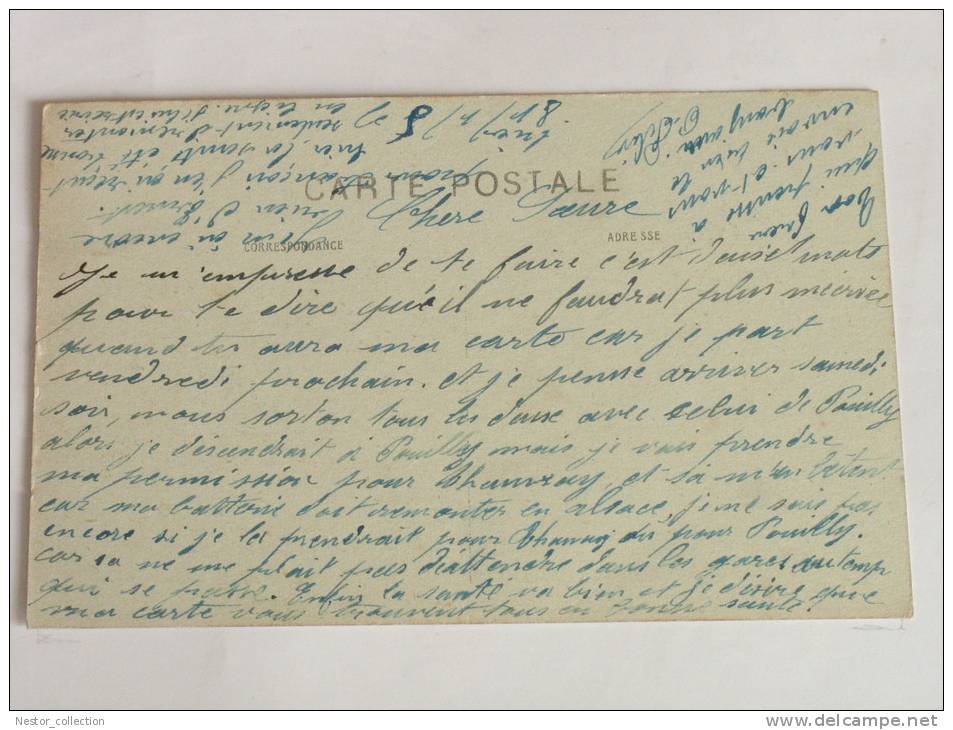 CARTE POSTALE
CORRESPONDANCE
ADRESSE
Chere Soeure
Je m'empresse de te faire c'est deuse mots
pour te dire qu'il ne faudrat plus mecrire
quand tu aura ma carte car je part
vendredi prochain. et je pense arriver samedi
soir, nous sorton tous les deuse avec celui de Pouilly
alors je désendrait à Pouilly mais je vais prendre
ma permission pour Chauvay, et sa m'embétent
car ma battrie doit remonter en alsace, je ne sais pas
encore si je la prendrait pour Chauvay ou pour Pouilly.
car sa ne me plait pas d'attendre dans les gares au temp
qui se passe. Enfin la santé va bien et je désire que
ma carte vous trouvent tous en bonne santé.
Ton frere
qui pense a
vous et vous
envois bien le
bonjour
J'en ai encore
rien d'Ernest.
pour j'en ai reçut
hier, la santé été bonne
seulement
en ligne.
Nestor_collection
www.delcampe.net